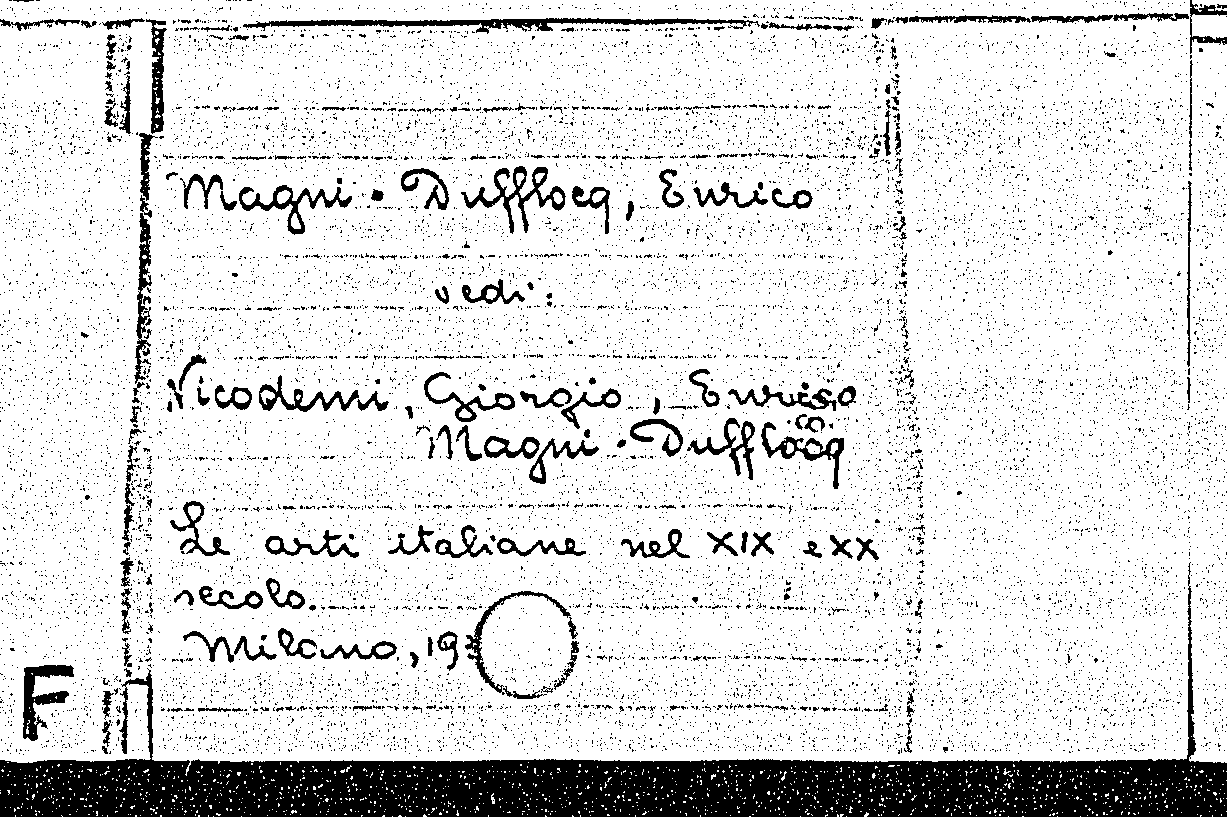 Magni-Dufflocq, Enrico
vedi:
Nicodemi, Giorgio, Enrico
Magni-Dufflocq
Le arti italiane nel XIX e XX
secolo.
Milano,
F